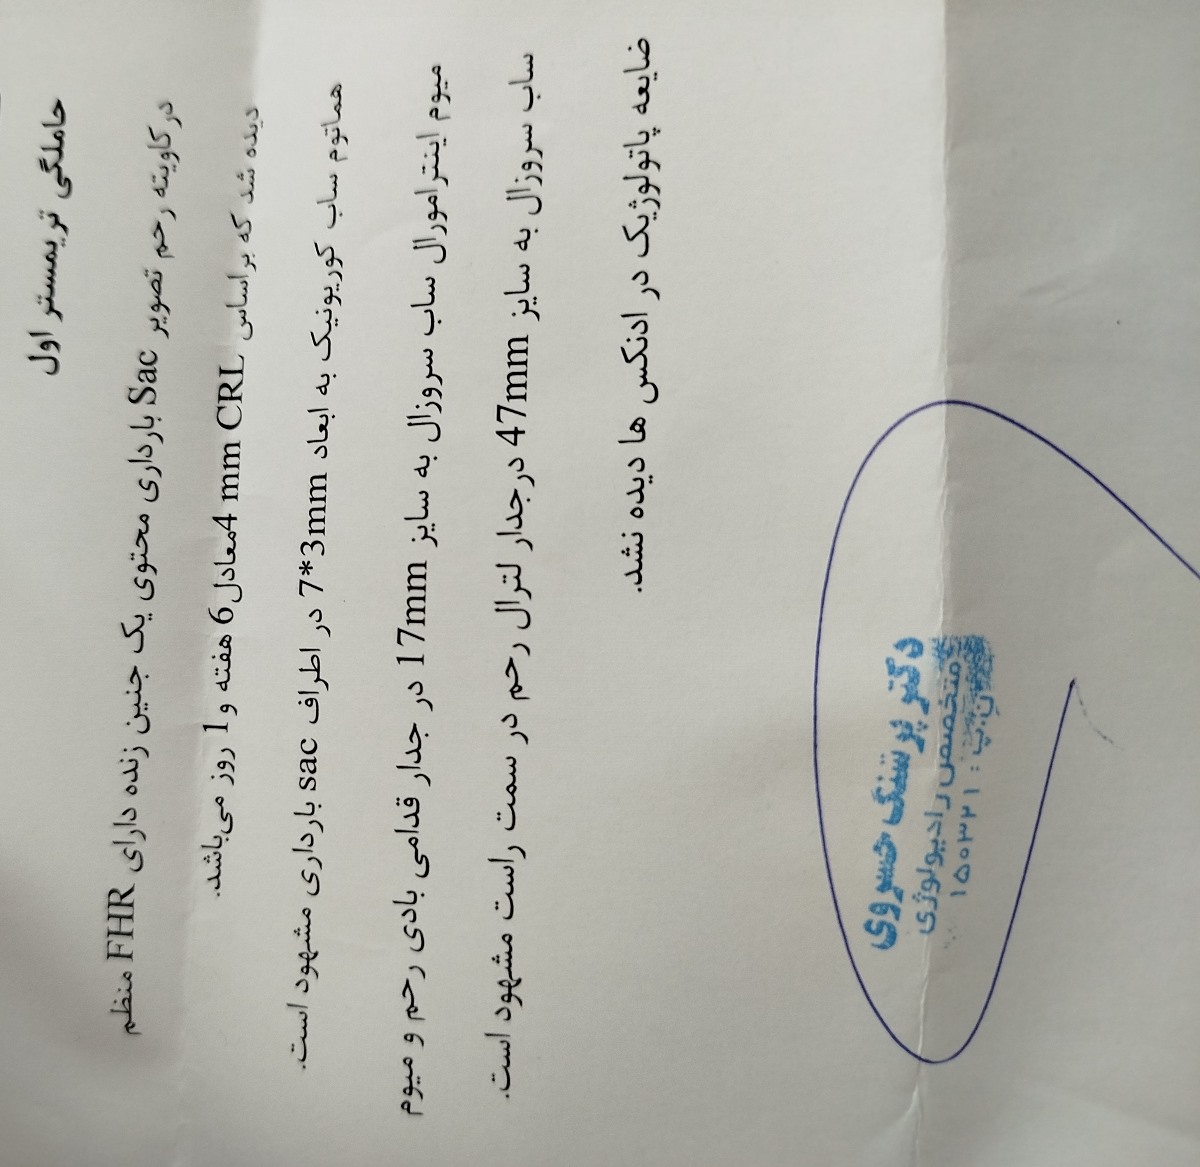 حاملگی تریمستر اول
در کاویته رحم تصویر Sac بارداری محتوی یک جنین زنده دارای FHR منظم
دیده شد که بر اساس 4 mm CRL معادل 6 هفته و 1 روز می‌باشد.
هماتوم ساب کوریونیک به ابعاد 7*3mm در اطراف sac بارداری مشهود است.
میوم اینترامورال ساب سروزال به سایز 17mm در جدار قدامی بادی رحم و میوم
ساب سروزال به سایز 47mm درجدار لترال رحم در سمت راست مشهود است.
ضایعه پاتولوژیک در ادنکس ها دیده نشد.
دکتر پرشنگ خسروی
متخصص رادیولوژی
ن.پ: ۱۵۰۳۲۱